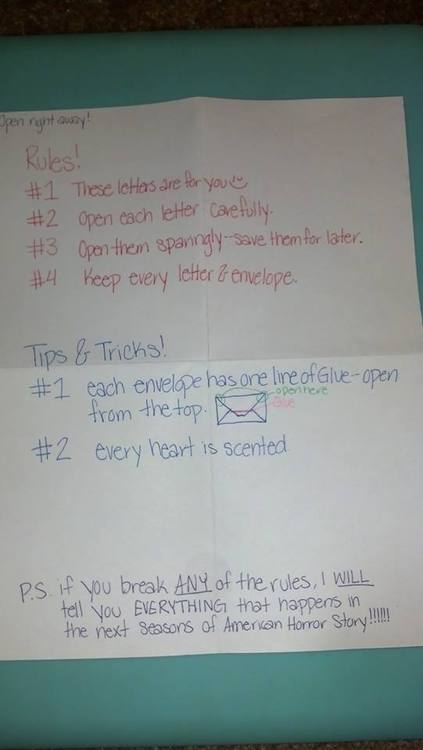 Open right away!
Rules!
#1 These letters are for you
#2 Open each letter carefully.
#3 Open them sparingly--save them for later.
#4 Keep every letter & envelope.
Tips & Tricks!
#1 each envelope has one line of Glue-open
from the top.
open here
Glue
#2 every heart is scented
P.S. if you break ANY of the rules, I WILL
tell you EVERYTHING that happens in
the next seasons of American Horror Story!!!!!!